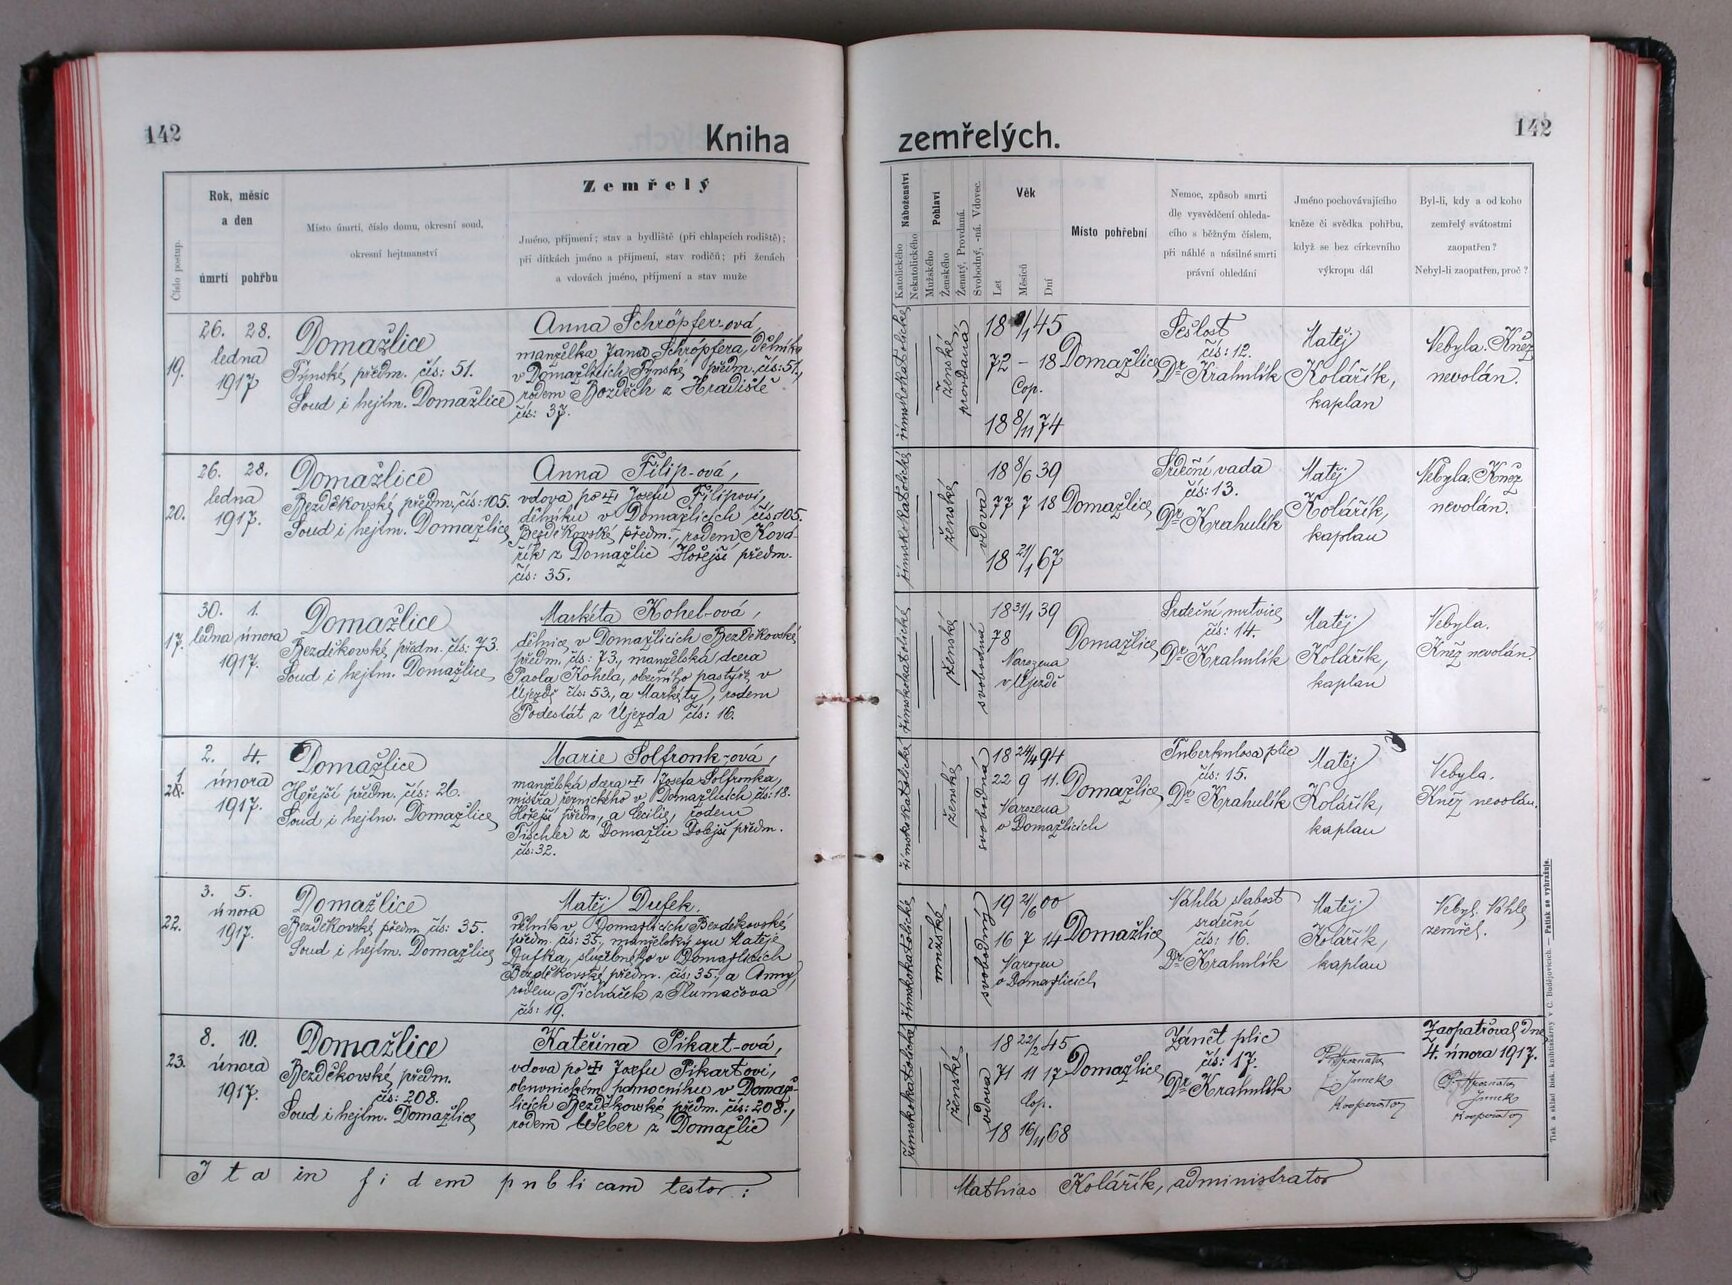 142
Kniha
zemřelých.
142
Číslo postup.
Rok, měsíc
a den
úmrtí pohřbu
Místo úmrtí, číslo domu, okresní soud,
okresní hejtmanství
Zemřelý
Jméno, příjmení; stav a bydliště (při chlapcích rodiště);
při dítkách jméno a příjmení, stav rodičů; při ženách
a vdovách jméno, příjmení a stav muže
Náboženství
Katolického
Nekatolického
Pohlaví
Mužského
Ženského
Ženatý, Provdaná.
Svobodný, -ná. Vdovec.
Věk
Let
Měsíců
Dní
Místo pohřební
Nemoc, způsob smrti
dle vysvědčení ohleda-
cího s běžným číslem,
při náhlé a násilné smrti
právní ohledání
Jméno pochovávajícího
kněze či svědka pohřbu,
když se bez církevního
výkropu dál
Byl-li, kdy a od koho
zemřelý svátostmi
zaopatřen?
Nebyl-li zaopatřen, proč?
19.
26. 28.
ledna
1917
Domažlice
Týnské předm. čís: 51.
Soud i hejtm. Domažlice
Anna Schröpfer-ová,
manželka Jana Schröpfera, dělníka
v Domažlicích Týnské předm. čís: 51,
rodem Bozděch z Hradiště
čís: 37.
římskokatolické
ženské
provdaná
18 /1 45
72 – 18
Cop.
18 8/11 74
Domažlice
Sešlost
čís: 12.
Dr Krahulík
Matěj
Kolářík,
kaplan
Nebyla. Kněz
nevolán.
20.
26. 28.
ledna
1917.
Domažlice
Bezděkovské předm. čís: 105.
Soud i hejtm. Domažlice
Anna Filip-ová,
vdova po ✝ Josefu Filipovi,
dělníku v Domažlicích čís: 105.
Bezděkovské předm., rodem Ková-
řík z Domažlic Hořejší předm.
čís: 35.
římskokatolické
ženské
vdova
18 8/6 39
77 7 18
18 21/1 67
Domažlice
Srdeční vada
čís: 13.
Dr Krahulík
Matěj
Kolářík,
kaplan
Nebyla. Kněz
nevolán.
17.
30. 1.
ledna února
1917.
Domažlice
Bezděkovské předm. čís: 73.
Soud i hejtm. Domažlice
Markéta Kohel-ová,
dělnice v Domažlicích Bezděkovské
předm. čís: 73., manželská dcera
Pavla Kohela, obecního pastýře v
Újezdě čís: 53, a Markéty, rodem
Podestát z Újezda čís: 16.
římskokatolické
ženské
svobodná
18 31/1 39
78
Narozena
v Újezdě
Domažlice
Srdeční mrtvice
čís: 14.
Dr Krahulík
Matěj
Kolářík,
kaplan
Nebyla.
Kněz nevolán.
21.
2. 4.
února
1917.
Domažlice
Hořejší předm. čís: 26.
Soud i hejtm. Domažlice
Marie Solfronk-ová,
manželská dcera ✝ Josefa Solfronka,
mistra řeznického v Domažlicích čís: 18.
Hořejší předm., a Cecilie, rodem
Tischler z Domažlic Dolejší předm.
čís: 32.
římskokatolické
ženské
svobodná
18 24/4 94
22 9 11.
Narozena
v Domažlicích
Domažlice
Tuberkulosa plic
čís: 15.
Dr Krahulík
Matěj
Kolářík,
kaplan
Nebyla.
Kněz nevolán.
22.
3. 5.
února
1917.
Domažlice
Bezděkovské předm. čís: 35.
Soud i hejtm. Domažlice
Matěj Dufek.
dělník v Domažlicích Bezděkovské
předm. čís: 35, manželský syn Matěje
Dufka, služebného v Domažlicích
Bezděkovské předm. čís: 35, a Anny,
rodem Ticháček z Tlumačova
čís: 19.
římskokatolické
mužské
svobodný
19 21/6 00
16 7 14
Narozen
v Domažlicích
Domažlice
Náhlá slabost
srdeční
čís: 16.
Dr Krahulík
Matěj
Kolářík,
kaplan
Nebyl. Náhle
zemřel.
23.
8. 10.
února
1917.
Domažlice
Bezděkovské předm.
čís: 208.
Soud i hejtm. Domažlice
Kateřina Pikart-ová,
vdova po ✝ Josefu Pikartovi,
obuvnickém pomocníku v Domaž-
licích Bezděkovské předm. čís: 208.,
rodem Weber z Domažlic
římskokatolické
ženské
vdova
18 22/2 45
71 11 17
Cop.
18 16/11 68
Domažlice
Zánět plic
čís: 17.
Dr Krahulík
Junek
kooperator
Zaopatřoval dne
4. února 1917.
Junek
kooperator
Ita in fidem publicam testor:
Mathias Kolářík, administrator
Tisk a sklad bisk. knihtiskárny v Č. Budějovicích. — Patisk se vyhražuje.